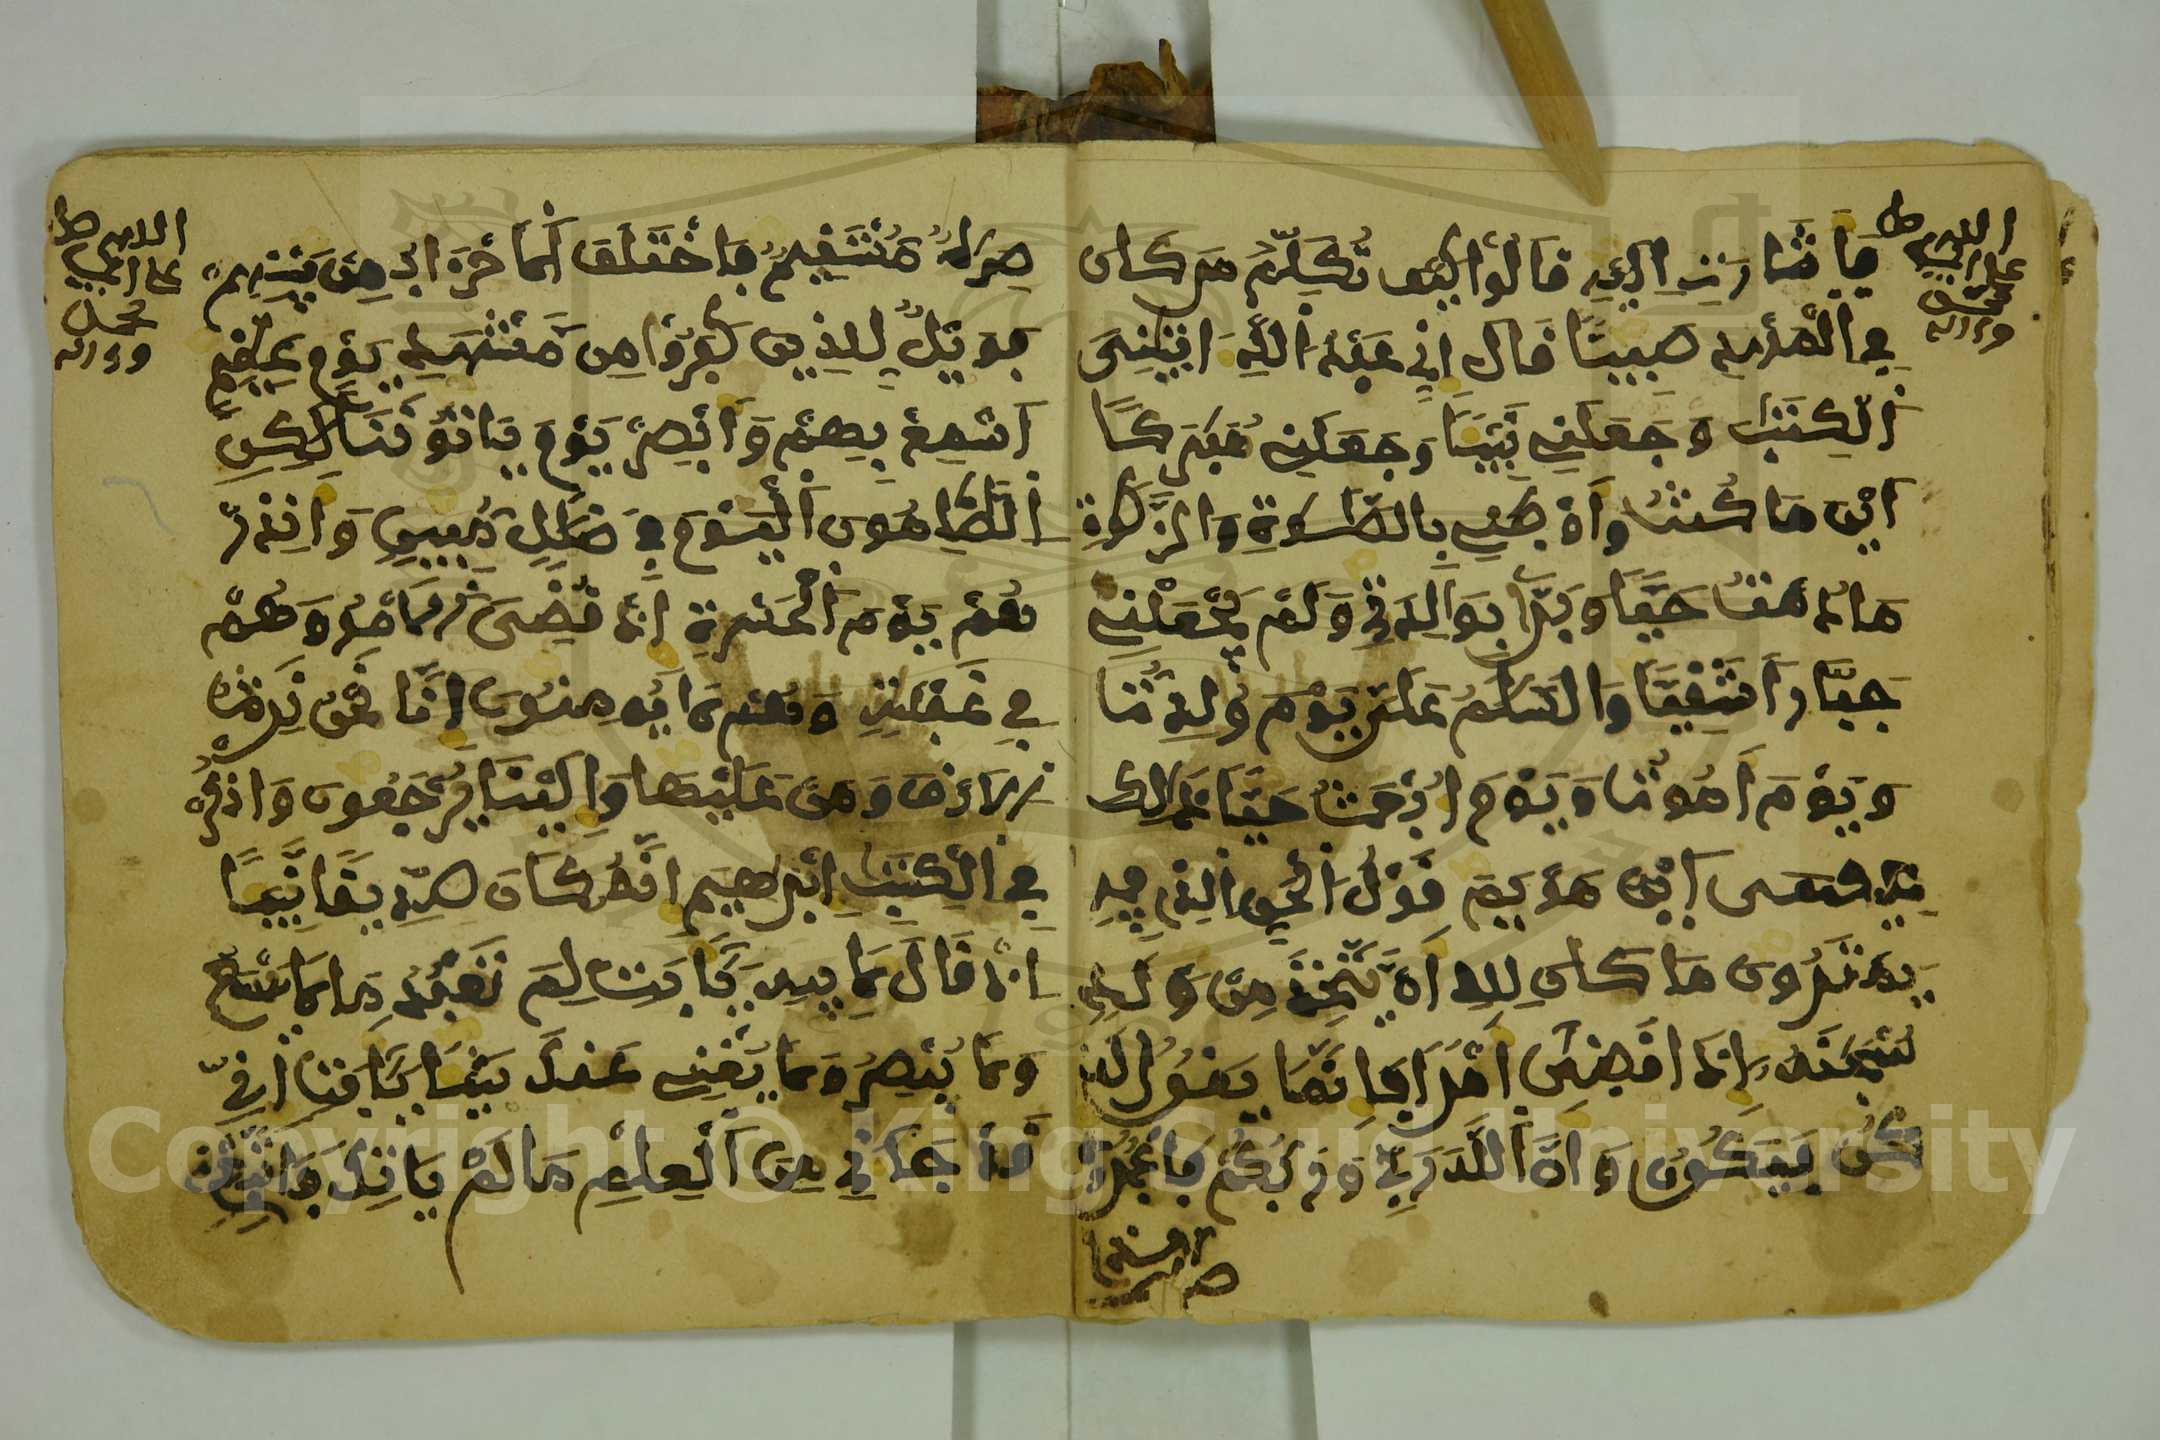 فأشارت إليه قالوا كيف نكلم من كان
في المهد صبيا قال إني عبد الله اتيني
الكتب وجعلني نبيا وجعلني مبركا
أين ما كنت وأوصني بالصلوة والزكوة
ما دمت حيا وبرا بوالدتي ولم يجعلني
جبارا شقيا والسلم علي يوم ولدت
ويوم أموت ويوم أبعث حيا ذلك
عيسى ابن مريم قول الحق الذي فيه
يمترون ما كان لله أن يتخذ من ولد
سبحنه إذا قضى أمرا فإنما يقول له
كن فيكون وأن الله ربي وربكم فاعبدوه
صراط مستقيم فاختلف الأحزاب من بينهم
فويل للذين كفروا من مشهد يوم عظيم
أسمع بهم وأبصر يوم يأتوننا لكن
الظلمون اليوم في ضلل مبين وأنذر
هم يوم الحسرة إذ قضي الأمر وهم
في غفلة وهم لا يؤمنون إنا نحن نرث
الأرض ومن عليها وإلينا يرجعون واذكر
في الكتب إبرهيم إنه كان صديقا نبيا
إذ قال لأبيه يأبت لم تعبد ما لا يسمع
ولا يبصر ولا يغني عنك شيئا يأبت إني
قد جاءني من العلم ما لم يأتك فاتبعني
Copyright © King Saud University